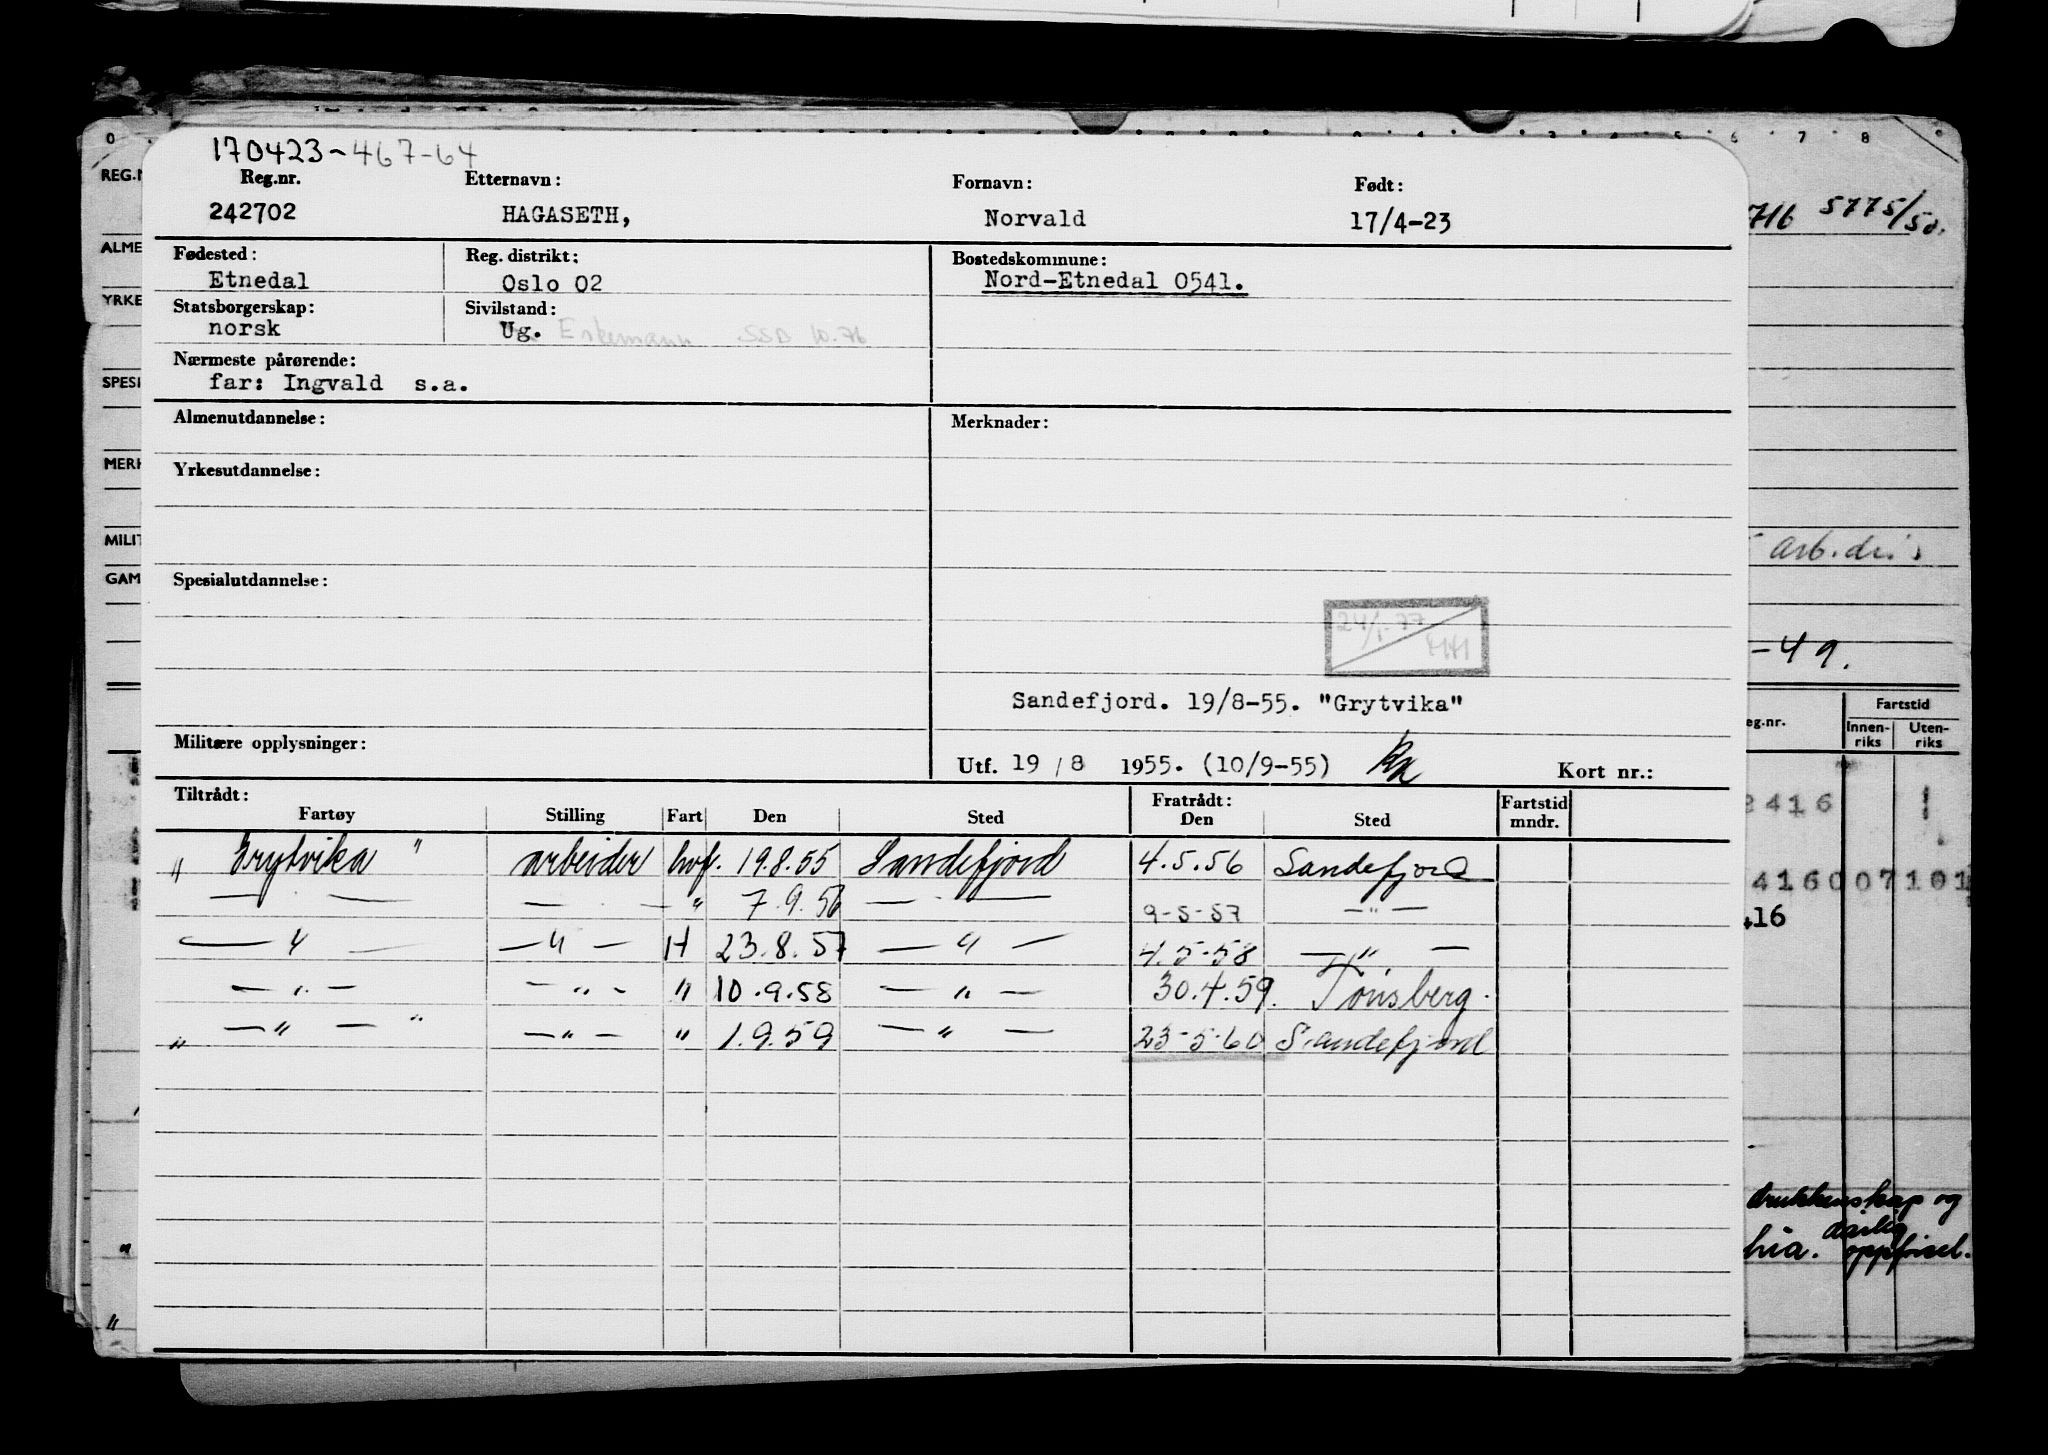 0 5 6 7 8
170423-467-64
REG.N
Reg.nr. Etternavn: Fornavn: Født:
242702 HAGASETH, Norvald 17/4-23
716 5775/50.
ALME
Fødested: Reg. distrikt: Bostedskommune:
Etnedal Oslo 02 Nord-Etnedal 0541.
YRKE
Statsborgerskap: Sivilstand:
norsk Ug. Enkemann SSB 10.76
Nærmeste pårørende:
far: Ingvald s.a.
SPESI
Almenutdannelse: Merknader:
MERK
Yrkesutdannelse:
MILIT
arb.
GAM
Spesialutdannelse:
24/1-77
-49.
Sandefjord. 19/8-55. "Grytvika"
Militære opplysninger:
Utf. 19 / 8 1955. (10/9-55) Kort nr.:
eg.nr. Fartstid
Innen-riks Uten-riks
Tiltrådt: Fratrådt: Fartstid
Fartøy Stilling Fart Den Sted Den Sted mndr.
2416
" Grytvika " arbeider hvf. 19.8.55 Sandefjord 4.5.56 Sandefjord
416007101
— — — — " 7.9.56 — — 9-5-57 — " —
16
— " — — " — H 23.8.57 — " — 4.5-58 — " —
— " — — " — " 10.9.58 — " — 30.4.59. Tønsberg.
" — " — " — " — " 1.9.59 — " — 23-5-60 Sandefjord
drukkenskap og
dårlig
hia. oppførsel.